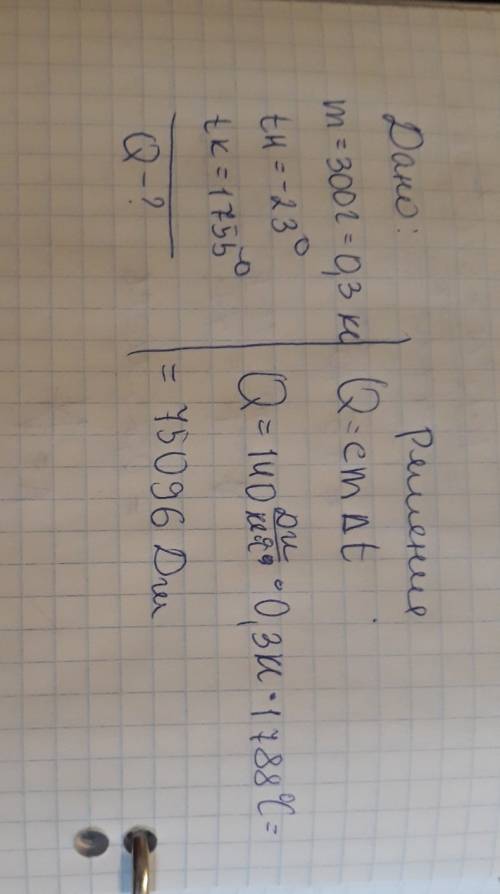 Дано:
m = 300г = 0,3 кг
tн = -23°
tк = 1755°
Q - ?
Решение
Q = cm Δt
Q = 140 Дж/кг°C · 0,3кг · 1788°C =
= 75096 Дж